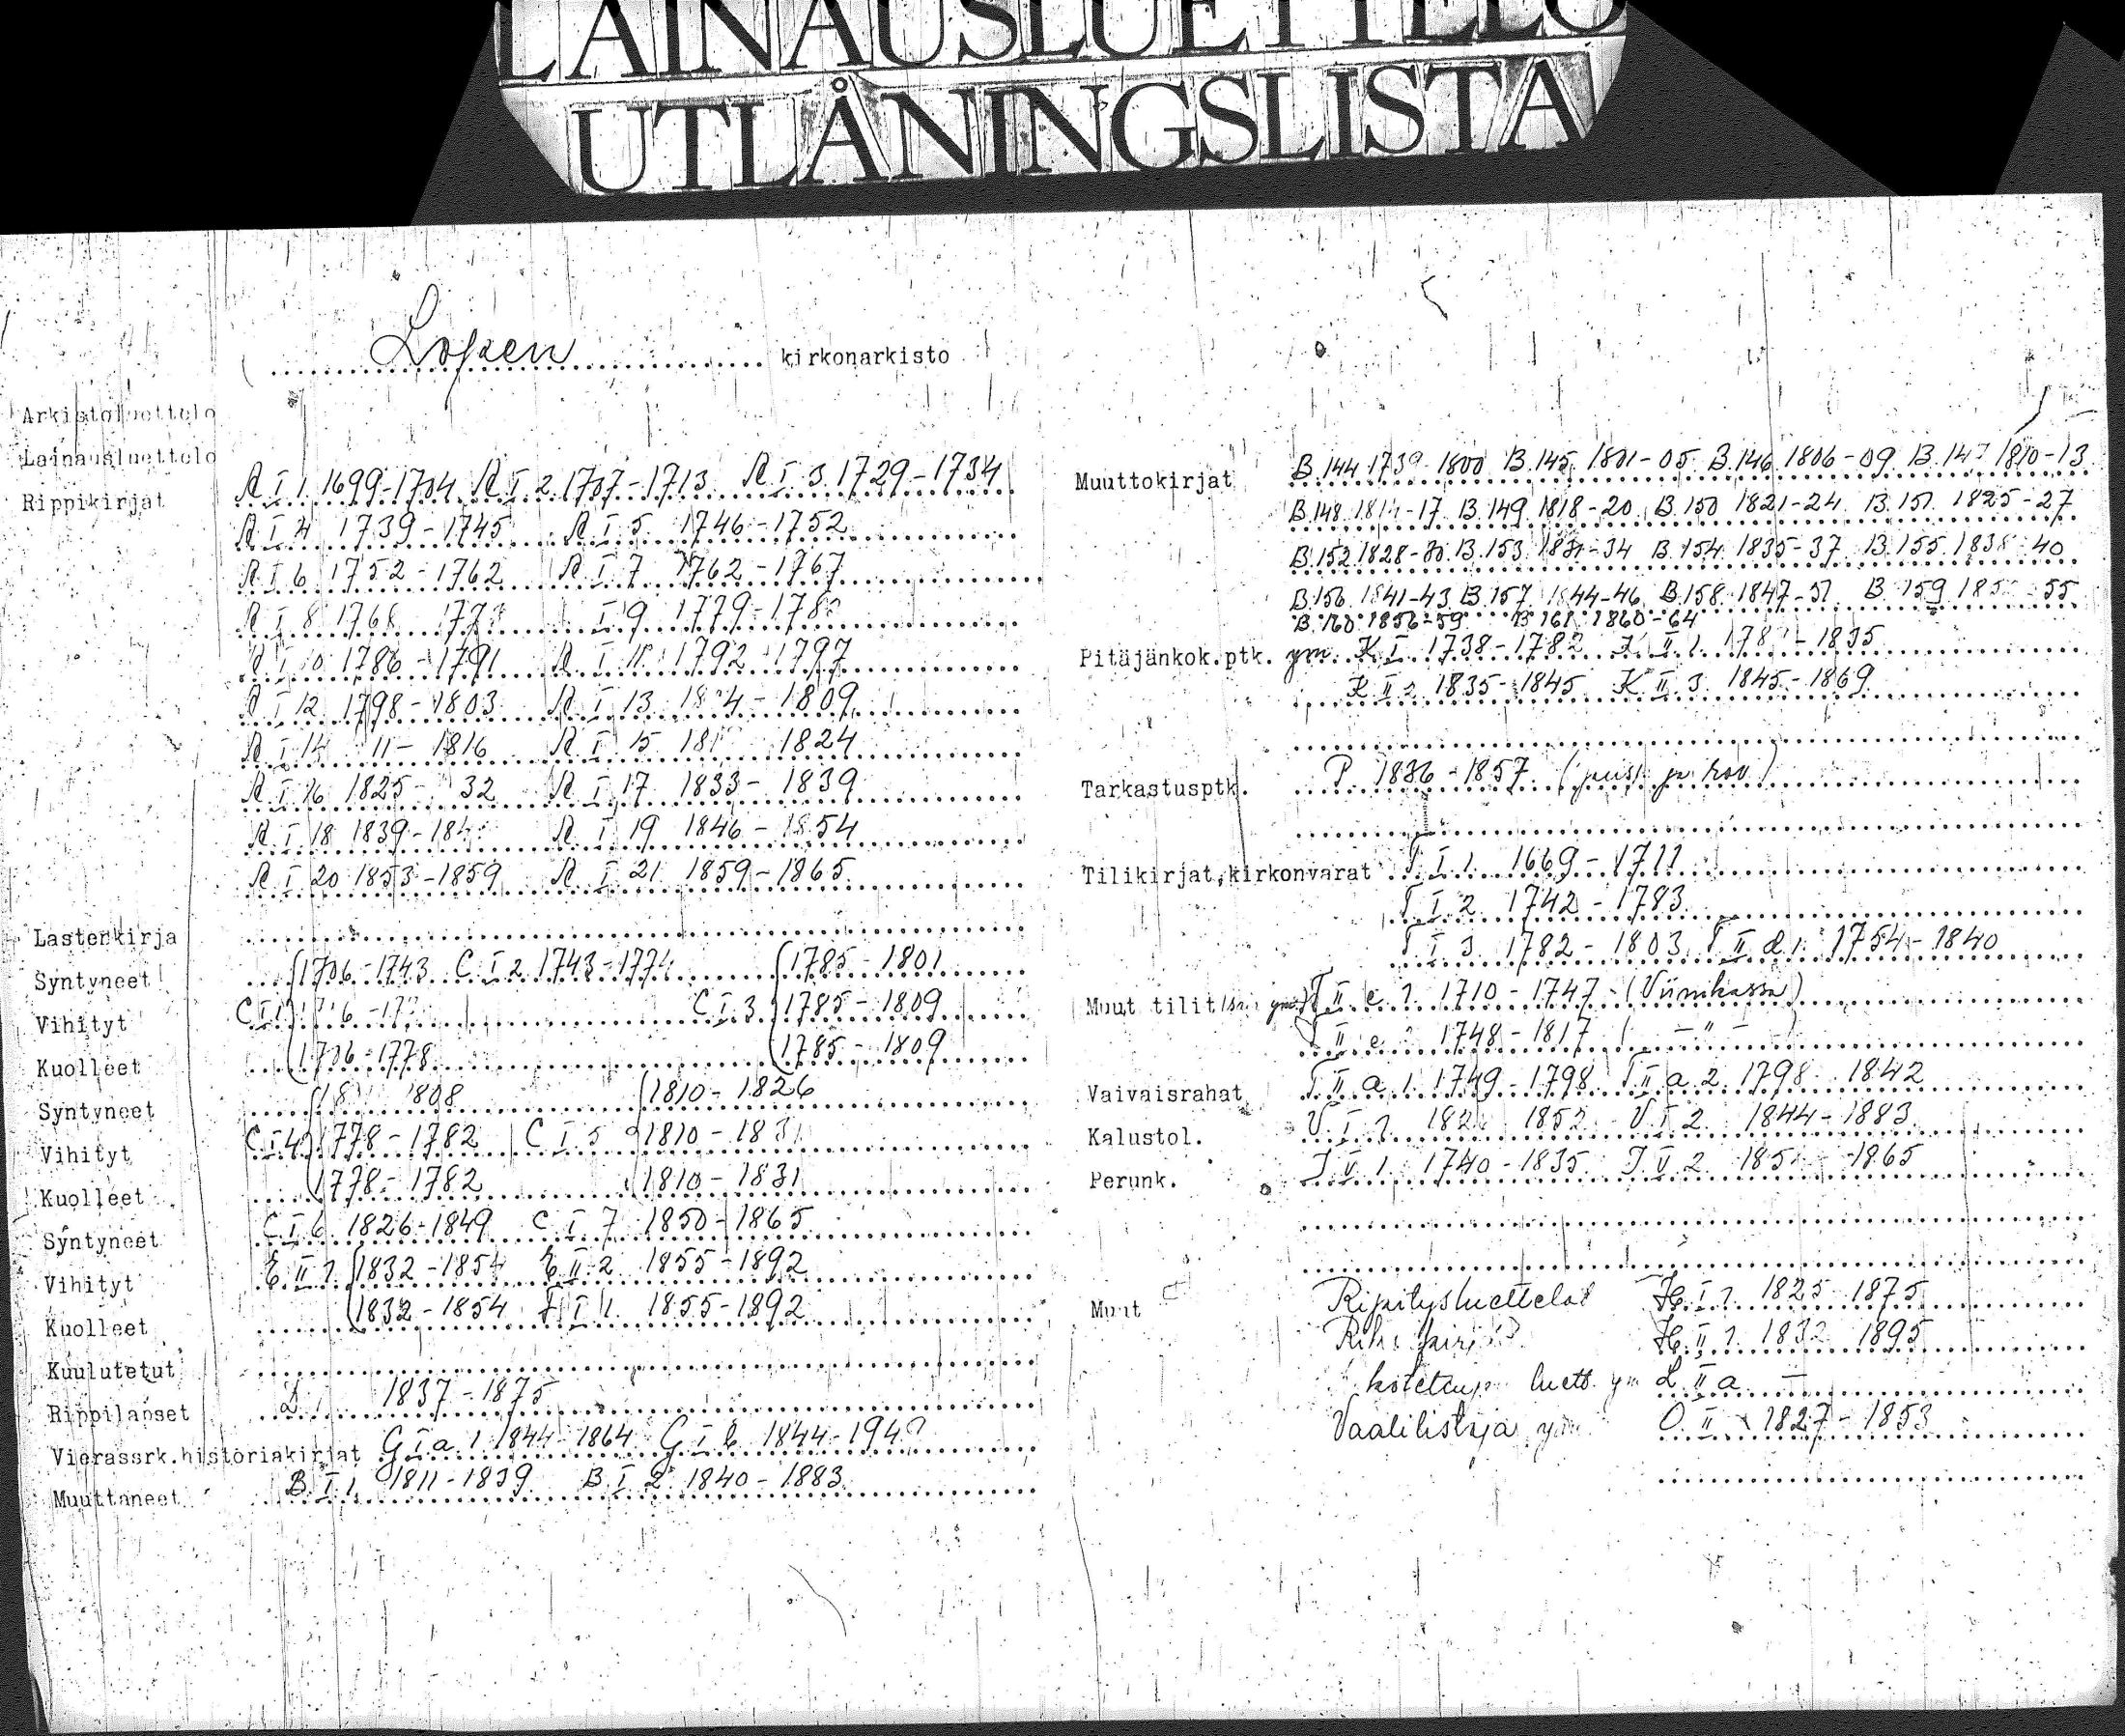 LAINAUSLUETTELO
UTLÅNINGSLISTA
Lopen kirkonarkisto
Arkistoluettelo
Lainausluettelo
Rippikirjat A I 1 1699-1704 A I 2 1707-1713 A I 3 1729-1734
A I 4 1739-1745 A I 5 1746-1752
A I 6 1752-1762 A I 7 1762-1767
A I 8 1768 I 9 1779-
A I 10 1786-1791 A I 11 1792-1797
A I 12 1798-1803 A I 13 -1809
A I 14 11-1816 A I 15 1824
A I 16 1825-32 A I 17 1833-1839
A I 18 1839- A I 19 1846-1854
A I 20 1853-1859 A I 21 1859-1865
Lastenkirja
Syntyneet 1706-1743 C I 2 1743-1774 1785-1801
Vihityt C I 1 C I 3 1785-1809
Kuolleet 1706-1778 1785-1809
Syntyneet 1808 1810-1826
Vihityt C I 4 1778-1782 C I 5 1810-1831
Kuolleet 1778-1782 1810-1831
Syntyneet C I 6 1826-1849 C I 7 1850-1865
Vihityt E II 1 1832-1854 E II 2 1855-1892
Kuolleet 1832-1854 F I 1 1855-1892
Kuulutetut
Rippilapset D 1837-1875
Vierassrk.historiakirjat G I a 1 1844-1864 G I b 1844-
Muuttaneet B I 1 1811-1839 B I 2 1840-1883
Muuttokirjat B.144 1739-1800 B.145 1801-05 B.146 1806-09 B.147 1810-13
B.148 -17 B.149 1818-20 B.150 1821-24 B.151 1825-27
B.152 1828-30 B.153 1831-34 B.154 1835-37 B.155 1838-40
B.156 1841-43 B.157 1844-46 B.158 1847-51 B.159 -55
B.160 1856-59 B.161 1860-64
Pitäjänkok.ptk. ym K I 1738-1782 K II 1 -1835
K II 2 1835-1845 K II 3 1845-1869
Tarkastusptk. P 1836-1857
Tilikirjat,kirkonvarat T I 1 1669-1711
T I 2 1742-1783
T I 3 1782-1803 T II d 1 1754-1840
Muut tilit T II e 1 1710-1747 (Viinikassa)
T II e 1748-1817 ( -"- )
Vaivaisrahat T II a 1 1749-1798 T II a 2 1798 1842
Kalustol. V I 1 1852 V I 2 1844-1883
Perunk. J V 1 1740-1835 J V 2 1865
Muut Ripitysluettelot H I 1 1825-1875
H II 1 1832 1895
luett. ym L II a —
Vaalilistoja ym. O II 1827-1853